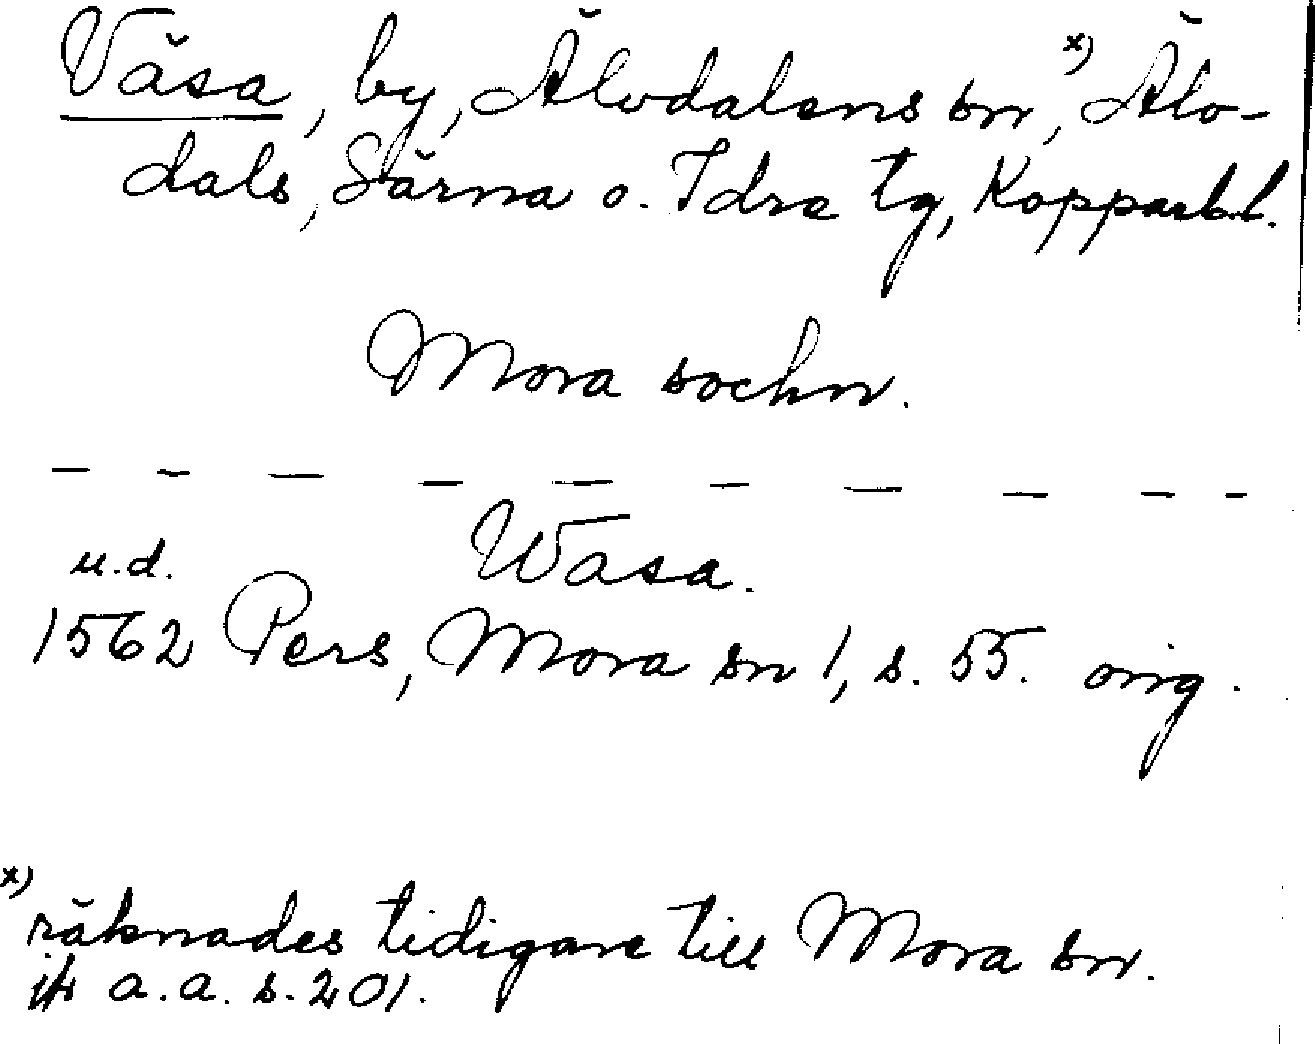 Väsa, by, Älvdalens sn,x) Älv-
dals, Särna o. Idre tg, Kopparb.l.
Mora sochn.
— — — — — — — — — —
Wasa.
u.d.
1562 Pers, Mora sn 1, s. 55. orig.
x)
räknades tidigare till Mora sn.
jfr a.a. s. 201.